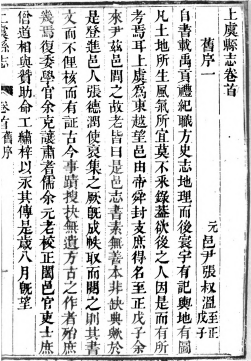 上虞縣志卷首
舊序一
元邑尹張叔溫至正戊子
自書載禹貢禮紀職方史志地理而後寰宇有記輿地有圖
凡土地所生風氣所宜莫不彔錄蓋欲後之人因是而有所
考焉耳上虞為東越望邑由帝舜封支庶得名至正戊子余
來尹茲邑問之故老皆曰是邑志書素無善本非缺典歟於
是登進邑人張德潤使裒集之厥既成帙取而閱之則其書
文而不俚核而有証古今事蹟搜抉無遺方古之作者殆庶
幾焉復委學官余克讓肅者儒余元老校正闔邑官吏士庶
僉道相與贊助命工繡梓以永其傳是歲八月既望
上虞縣志
卷首舊序